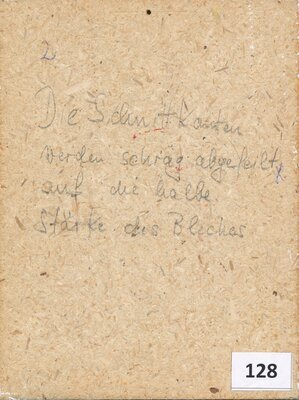 2
Die Schnittkanten
werden schräg abgefeilt,
auf die halbe
Stärke des Bleches
128